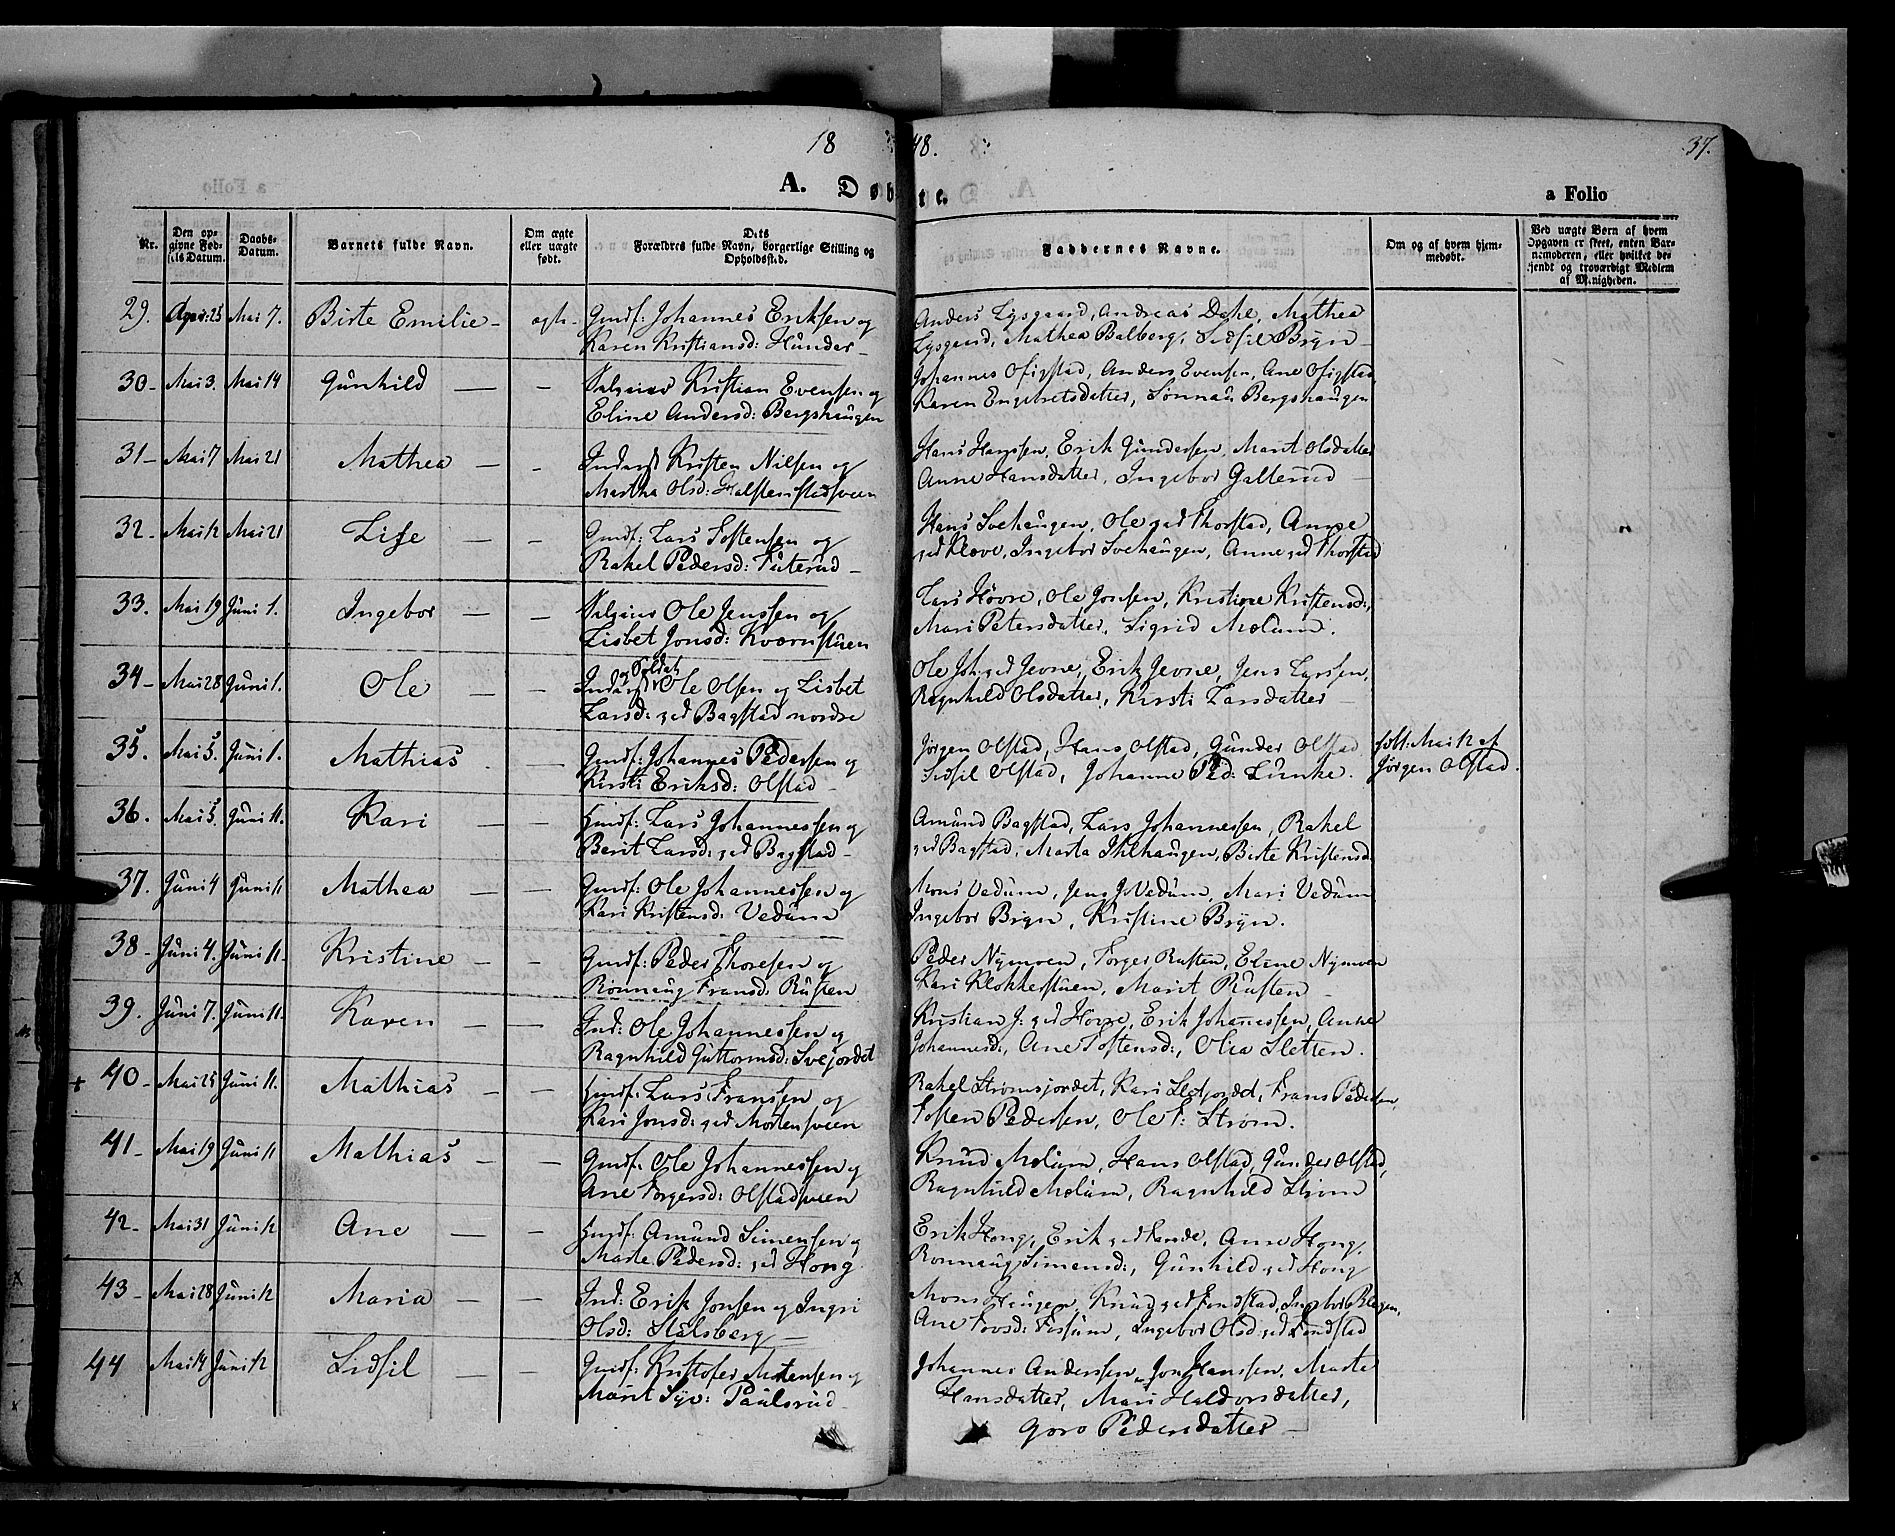 1848.
37.
A. Døbte.
a Folio
Nr.
Den opgivne Fødsels Datum.
Daabs-Datum.
Barnets fulde Navn.
Om ægte eller uægte født.
Dets Forældres fulde Navn, borgerlige Stilling og Opholdssted.
Faddernes Navne.
Om og af hvem hjemmedøbt.
Ved uægte Børn af hvem Opgaven er skeet, enten Barnemoderen, eller hvilket bekjendt og troværdigt Medlem af Menigheden.
29. April 25 Mai 7. Birte Emilie - ægte - Gmdf: Johannes Eriksen og Anders Lysgaard, Andreas Dahe, Mathea
Karen Kristiansd: Hunder - Lysgaard, Mathea Balberg, Sidsil Bryn -
30 - Mai 3. Mai 14 Gunhild — - Kristian Evensen og Johannes Ofigstad, Anders Evensen, Ane Ofigstad,
Eline Andersd: Bergshaugen Karen Engebretsdatter, Sønnau Bergshaugen
31 - Mai 7 Mai 21 Mathea - - Inderst Kristen Nilsen og Hans Hansen, Erik Gundersen, Marit Olsdatter
Martha Olsd: Halstenstadsveen Anne Hansdatter, Ingebor Galterud -
32 - Mai 12 Mai 21 Lise - - Gmdf: Lars Tostensen og Hans Svehaugen, Ole gsd Thorstad, Anne
Rakel Pedersd: Futerud - gsd Kleve, Ingebor Svehaugen, Anne gsd Thorstad
33. Mai 19 Juni 1. Ingebor - - Ole Jenssen og Lars Høvre, Ole Jonsen, Kristine Kristensd:,
Lisbet Jonsd: Kværnstuen Mari Petersdatter, Sigrid Molum.
34 - Mai 28 Juni 1. Ole - - Inderst og Soldat Ole Olsen og Lisbet Ole Joh: gsd Jevne, Erik Jevne, Jens Larsen,
Larsd: gsd Bagstad nordre Ragnhild Olsdatter, Kirsti Larsdatter -
35. Mai 5. Juni 1. Mathias. - Gmdf: Johannes Pedersen og Jørgen Olstad, Hans Olstad, Gunder Olstad Mai 12 af
Kirsti Eriksd: Olstad - Sidsil Olstad, Johanne Ped: Lunke. Jørgen Olstad.
36. Mai 5. Juni 11. Kari - - Gmdf: Lars Johannessen og Amund Bagstad, Lars Johannessen, Rakel
Berit Larsd: gsd Bagstad - gsd Bagstad, Marta Ihlhaugen, Birte Kristensd:
37. Juni 4 Juni 11 Mathea - - Gmdf: Ole Johannessen og Mons Vedum, Jens J. Vedum, Mari Vedum
Kari Kristensd: Vedum Ingebor Bryn, Kristine Bryn.
38 - Juni 4. Juni 11. Kristine - - Gmdf: Peder Thoresen og Peder Nymoen, Torger Rusten, Eline Nymoen
Rønnaug Fransd: Rusten Kari Klokkerstuen, Marit Rusten -
39. Juni 7. Juni 11. Karen - - Ind: Ole Johannessen og Kristian J: gsd Hovre, Erik Johannessen, Anne
Ragnhild Guttormsd: Svejordet Johannesd:, Ane Tostensd:, Olia Sletten.
+ 40 - Mai 25 Juni 11. Mathias - - Gmdf: Lars Fransen og Rakel Strømsjordet, Kari Sletjordet, Frans Pedersen,
Kari Jonsd: gsd Mortensveen Tosten Pedersen, Ole F: Strøm.
41 - Mai 19 Juni 11 Mathias - - Gmdf: Ole Johannessen og Knud Molum, Hans Olstad, Gunder Olstad,
Ane Torgersd: Olstadsveen Ragnhild Molum, Ragnhild Strøm
42 - Mai 31 Juni 12 Ane - - Gmdf: Amund Simensen og Erik Hong, Erik gsd Lande, Anne Hong,
Marte Pedersd: gsd Hong Rønnaug Simensd:, Gunhild gsd Hong
43 - Mai 28 Juni 12 Maria - - Ind: Erik Jonsen og Ingri Mons Haugen, Knud gsd Fondstad, Ingebor Blegen,
Olsd: Stalsberg - Ane Tovsd: Fossum, Ingebor Olsd gsd Fondstad
44 Mai 14 Juni 12 Sidsil - - Gmdf: Kristofer Mortensen og Johannes Anderssen, Jon Hanssen, Marte
Marit Syv: Paulsrud - Hansdatter, Mari Haldorsdatter,
Goro Pedersdatter -